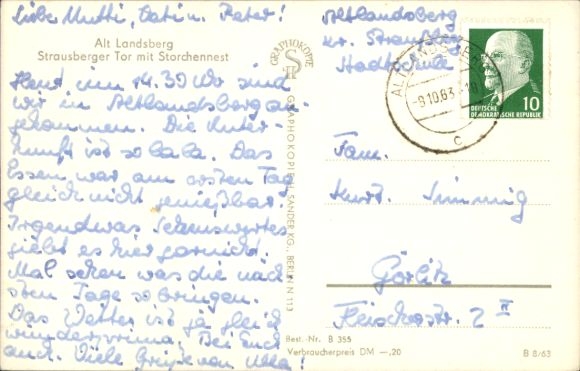 Liebe Mutti, Vati u. Peter!
Alt Landsberg
Strausberger Tor mit Storchennest
Heut um 14.30 Uhr sind
wir in Altlandsberg an-
gekommen. Die Unter-
kunft ist so lala. Das
Essen war am ersten Tag
gleich nicht genießbar.
Irgendwas Sehenswertes
giebt es hier garnicht.
Mal sehen was die näch-
sten Tage so bringen.
Das Wetter ist ja gleich
wunderprima. Bei Euch
auch. Viele Grüße von
GRAPHOKOPIE
GRAPHOKOPIE H. SANDER KG., BERLIN N 113
Best.-Nr. B 355
Verbraucherpreis DM —,20
Altlandsberg
Kr. Strausberg
ALTLANDSBERG
-9.10.63.-10
c
10
DEUTSCHE
DEMOKRATISCHE REPUBLIK
Fam.
Kurt
Görlitz
Fleischerstr. 2 II
B 8/63